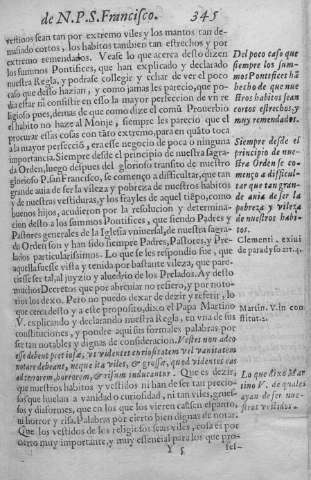 de N.P.S. Francisco. 345
vestidos sean tan por extremo viles y los mantos tan de-
masiado cortos, los habitos tambien tan estrechos y por
extremo remendados. Vease lo que acerca desto dizen
los summos Pontifices, que han explicado y declarado
nuestra Regla, y podrase collegir y echar de ver el poco
caso que desto hazian, y como jamas les parecio, que po-
dia estar ni consistir en esso la mayor perfection de un re
ligioso pues, demas de que como dize el comũ Prouerbio
el habito no haze al Monje, siempre les parecio que el
procurar essas cosas con tãto extremo, para en quãto toca
a la mayor perfecciõ, era esse negocio de poca o ninguna
importancia. Siempre desde el principio de nuestra sagra-
da Orden, luego despues del glorioso transito de nuestro
glorioso P. san Francisco, se començo a difficultar, que tan
grande auia de ser la vileza y pobreza de nuestros habitos
y de nuestras vestiduras, y los frayles de aquel tiẽpo, como
buenos hijos, acudieron por la resolucion y determina-
cion desto a los summos Pontifices, que siendo Padres y
Pastores generales de la Iglesia vniuersal, de nuestra sagra-
da Orden son y han sido siempre Padres, Pastores, y Prela-
dos particularissimos. Lo que se les respondio fue, que
aquella fuesse vista y tenida por bastante vileza, que pare-
ciesse ser tal, al juyzio y aluedrio de los Prelados. Ay desto
muchos Decretos que por abreuiar no refiero, y por noto-
rios los dexo. Pero no puedo dexar de dezir y referir, lo
que cerca desto y a este proposito, dixo el Papa Martino
V. explicando y declarando nuestra Regla, en vna de sus
constituciones, y pondre aqui sus formales palabras por
ser tan notables y dignas de consideracion. Vestes non adeo
esse debent pretiosæ, vt videntes curiositatem vel vanitatem
notare debeant, neque ita viles, & grossæ, quod videntes eas
adhorrorem, & risum inducantur. Que es dezir,
que nuestros habitos y vestidos ni han de ser tan precio-
sos que huelan a vanidad o curiosidad, ni tan viles, grues-
sos y disformes, que en los que los vieren causen espanto,
ni horror y risa. Palabras por cierto bien dignas de notar.
Que los vestidos de los religiosos sean viles, cosa es por
cierto muy importante, y muy essencial para los que pro-
Y 5
fes-
Del poco caso que
siempre los sum-
mos Pontifices hã
hecho de que nue
stros habitos sean
cortos estrechos, y
muy remendados.
Siempre desde el
principio de nue-
stra Orden se co-
menço a difficul-
tar que tan gran-
de auia de ser la
pobreza y vileza
de nuestros habi-
tos.
Clement. exiui
de paradyso art. 4.
Martin. V. in con
stitut. 2.
Lo que dixo Mar
tino V. de quales
ayan de ser nue-
stros vestidos.